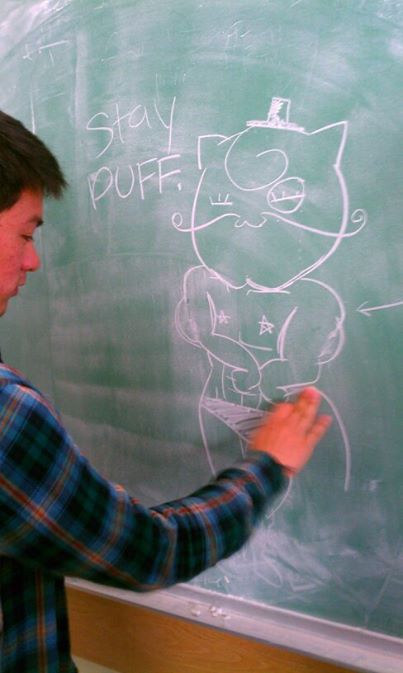 Stay
PUFF.